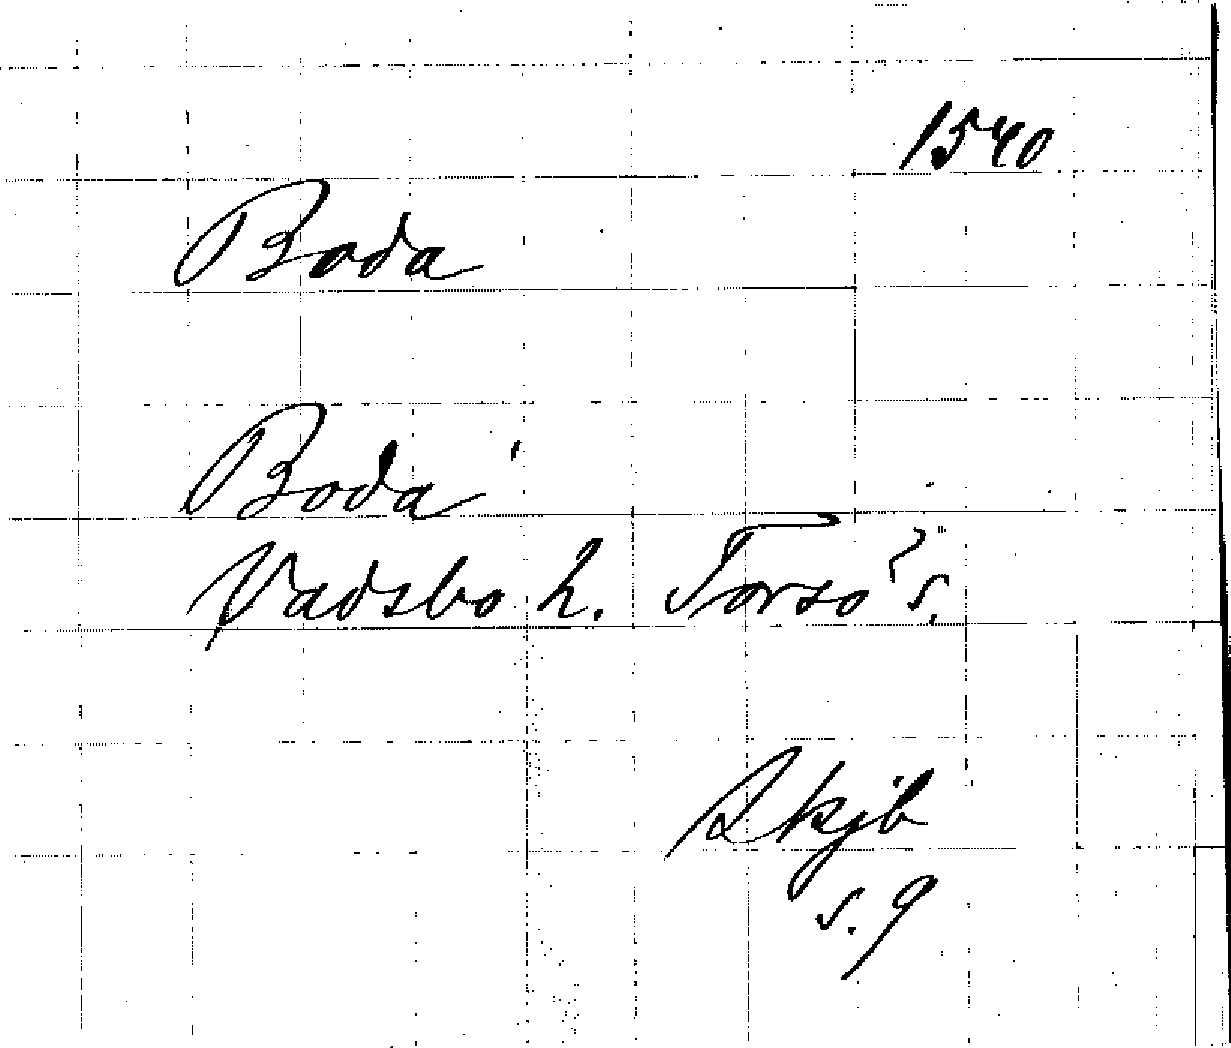 1540
Boda
Boda
Vadsbo h. Torsö s.
Skjb
s. 9